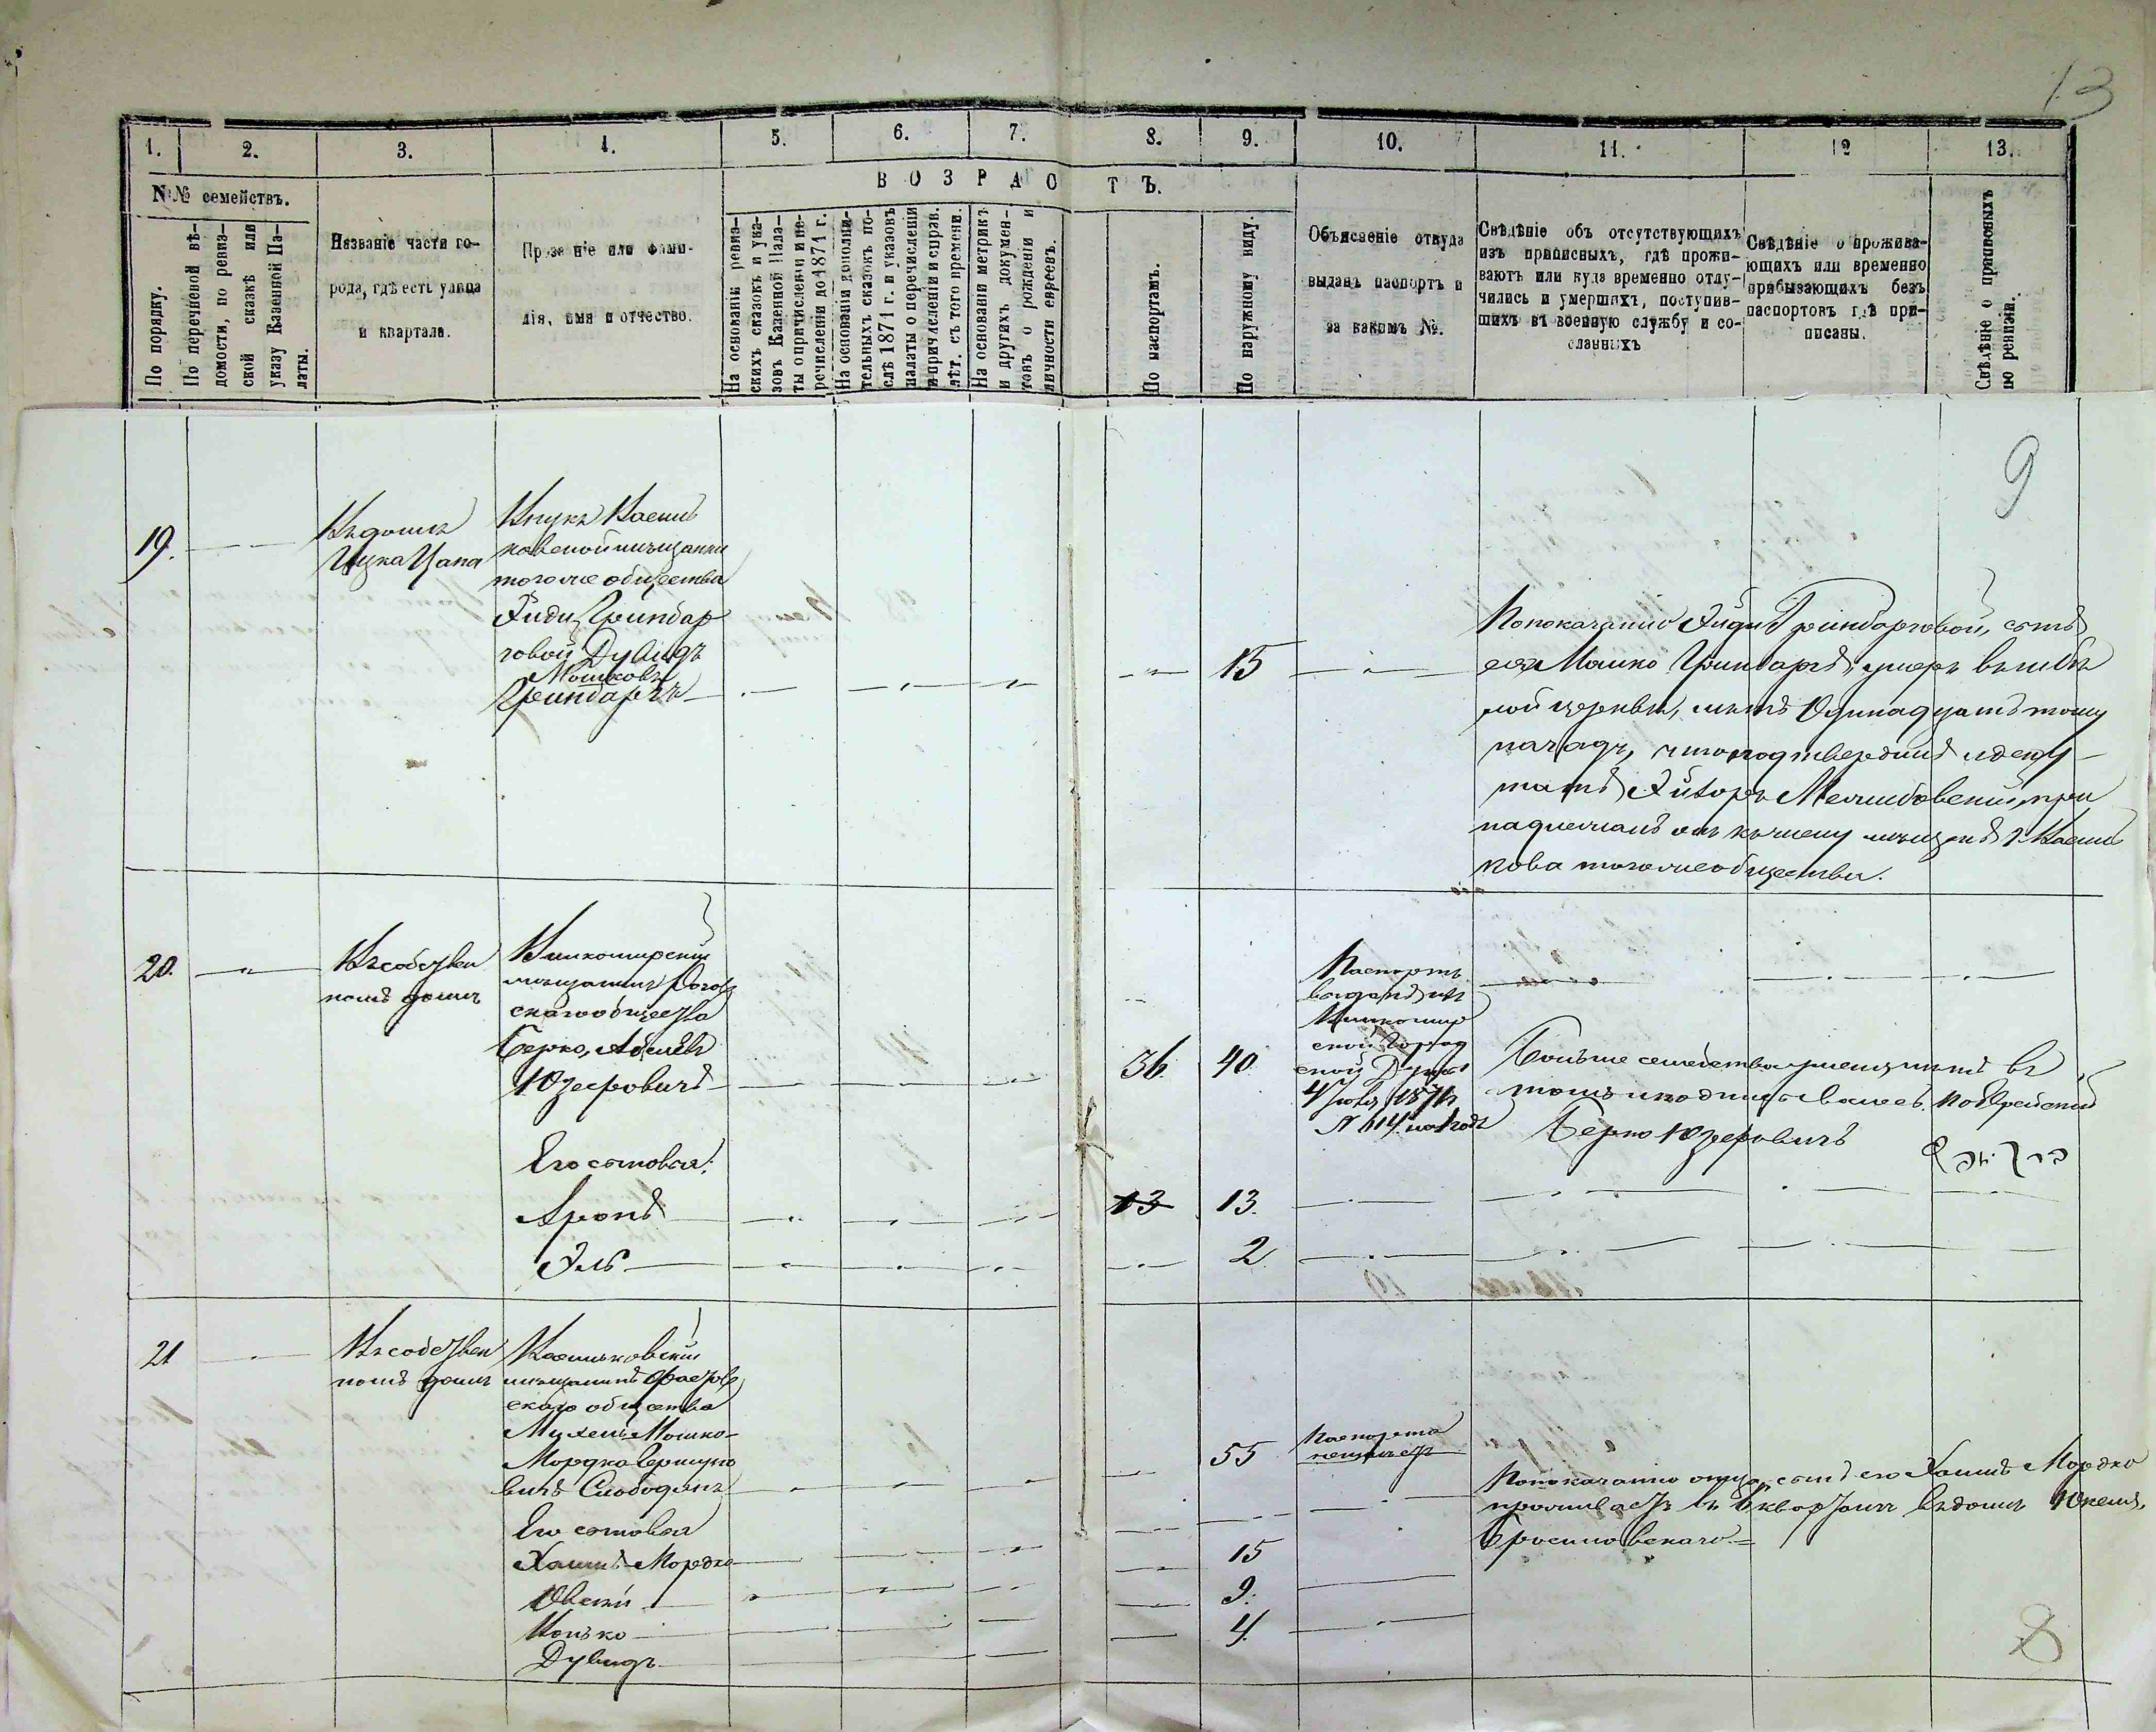 13
1. 2. 3. 4. 5. 6. 7. 8. 9. 10. 11. 12 13.
№№ семействъ.
По порядку.
По перечневой вѣ-
домости, по ревиз-
ской сказкѣ или
указу Казенной Па-
латы.
Названіе части го-
рода, гдѣ есть улица
и квартала.
Прозваніе или фами-
лія, имя и отчество.
ВОЗРАСТЪ.
На основаніи ревиз-
скихъ сказокъ и ука-
зовъ Казенной Пала-
ты о причисленіи и пе-
речисленіи до 1871 г.
На основаніи дополни-
тельныхъ сказокъ по-
слѣ 1871 г. и указовъ
палаты о перечисленіи
и причисленіи и справ.
лѣт. съ того времени.
На основаніи метрикъ
и другихъ докумен-
товъ о рожденіи и
личности евреевъ.
По паспортамъ.
По наружному виду.
Объясненіе откуда
выданъ паспортъ и
за какимъ №.
Свѣдѣніе объ отсутствующихъ
изъ приписныхъ, гдѣ прожи-
ваютъ или куда временно отлу-
чились и умершихъ, поступив-
шихъ въ военную службу и со-
сланныхъ
Свѣдѣніе о прожива-
ющихъ или временно
прибывающихъ безъ
паспортовъ гдѣ при-
писаны.
Свѣдѣніе о приписныхъ
по ревизіи.
9
19.
Въ домѣ
Ицка Цапа
Внукъ Василь
ковской мѣщанки
того же общества
Фиды Гринбар
говой Дувидъ
Мошковъ
Гринбаргъ
15
По показанію Фиды Гринбарговой, сынъ
ея Мошко Гринбаргъ, умеръ въ Бѣ
лой церкви, лѣтъ Одинадцать тому
назадъ, что подтвердилъ и депу-
татъ
надлежалъ онъ къ мѣщан г. Василь
кова того же общества.
20.
Въ собствен
номъ домѣ
Житомирскій
мѣщанинъ
скаго общества
Берко Абелевъ
Юзефовичъ
36. 40.
Паспортъ
выданъ изъ
Житомир
ской Город
ской Думы
4 Іюля 187
№ 614 на годъ
Больше семейства у меня нѣтъ въ
томъ и подписываюсь по Еврейски
Берко Юзефовичъ
Его сыновья:
Аронъ
13 13.
Эль
2.
21
Въ собствен
номъ домѣ
Васильковскій
мѣщанинъ Фастов
скаго общества
Мошко-
Мордко Берку
вичъ Слободянъ
55
Паспорта
неимѣетъ
Его сыновья
Хаимъ-Мордко
15
Овсій
9.
Іонько
4.
Дувидъ
По показанію отца, сынъ его Хаимъ Мордко
проживаетъ въ кварталѣ въ домѣ
8